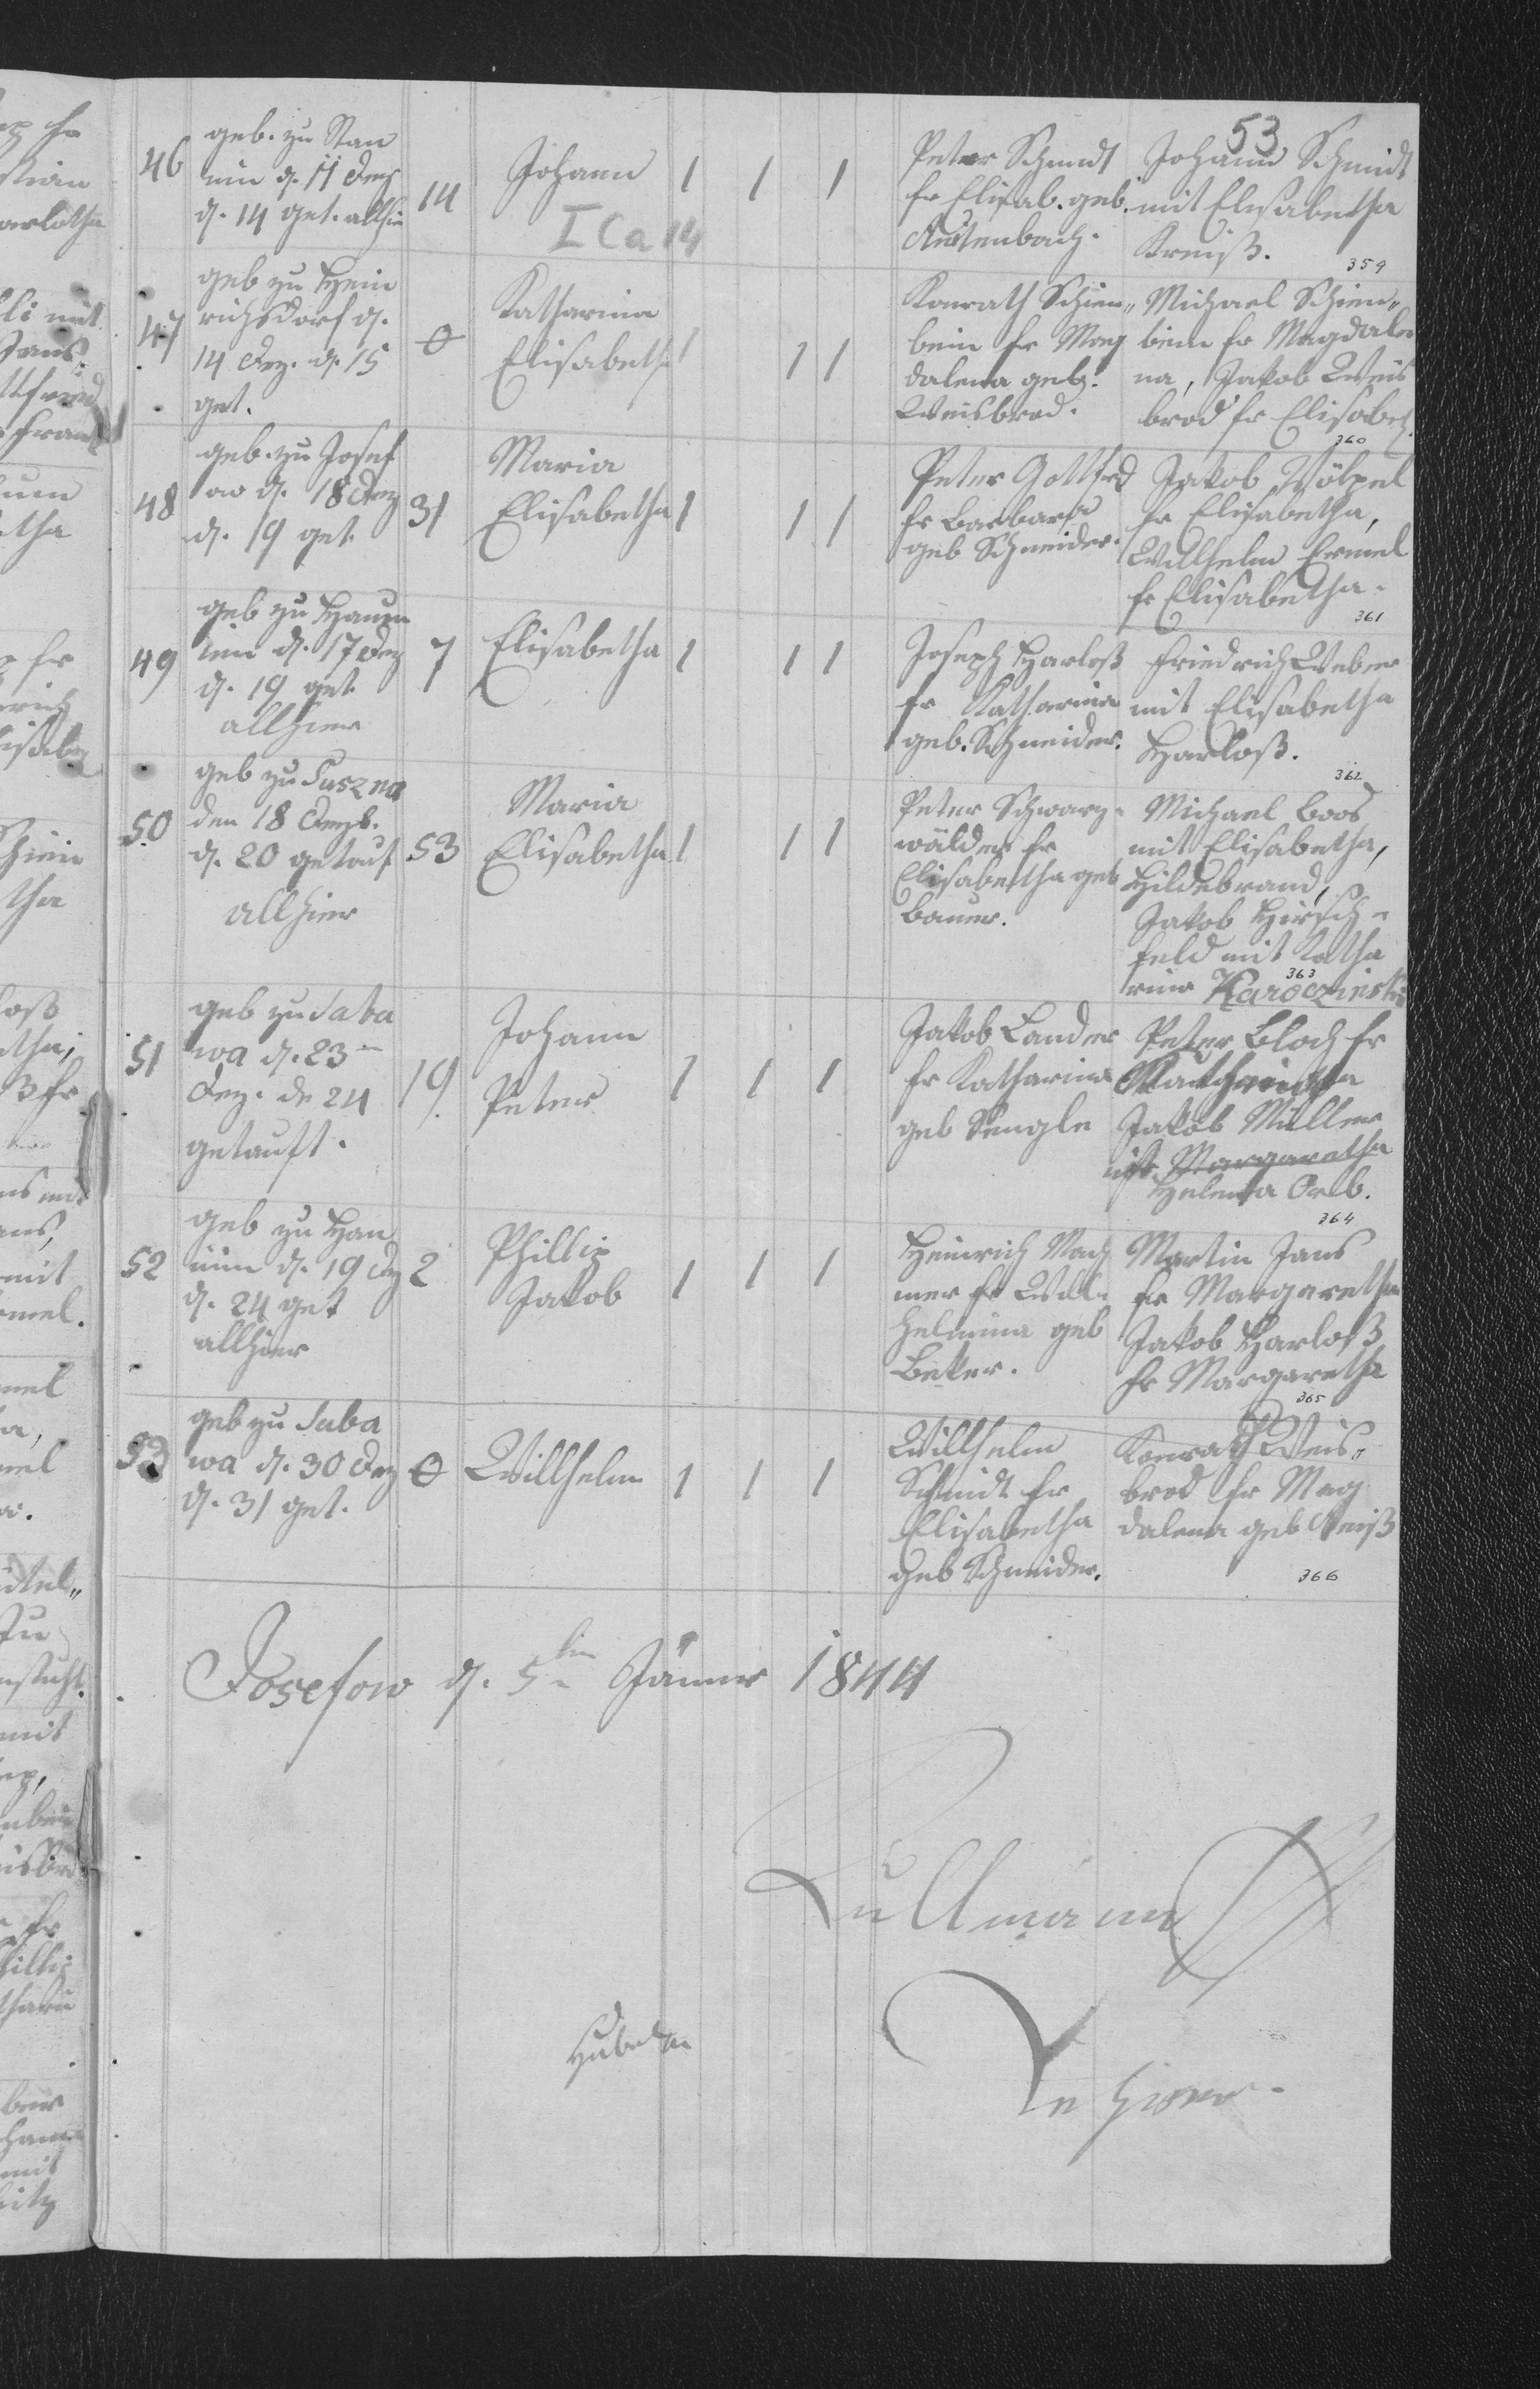 53
46
geb. zu Stan
nin d. 11 Dez
d. 14 get. allhie
14
Johann
1 1 1
I C a 14
Peter Schmidt
fr Elisab. geb.
Autenbach.
Johann Schmidt
mit Elisabetha
Kreiß.
359
47
geb zu Hein
richsdorf d.
14 Dez. d. 15
get.
0
Katharina
Elisabeth
1 1 1
Konrath Schien„
bein fr Mag
dalena geb.
Weisbrod.
Michael Schien„
bein fr Magdale
na, Jakob Weis
brod fr Elisabeth.
360
48
geb. zu Josef
ow d. 18 Dez
d. 19 get.
31
Maria
Elisabetha
1 1 1
Peter Gottfrd
fr Barbara
geb Schneider.
Jakob Völpel
fr Elisabetha,
Willhelm Ermel
fr Elisabetha.
361
49
geb zu Hanun
nin d. 17 Dez
d. 19 get.
allhier
7
Elisabetha
1 1 1
Joseph Harloß
fr Katharina
geb. Schneider.
Friedrich Weber
mit Elisabetha
Harloß.
362
50
geb zu Tuszna
den 18 Dezb.
d. 20 getauf
allhier
53
Maria
Elisabetha
1 1 1
Peter Schwarz-
wälder fr
Elisabetha geb
Bauer.
Michael Boos
mit Elisabetha,
Hildebrand,
Jakob Hirsch=
feld mit Katha
rina Karoczinski
363
51
geb zu Saba
wa d. 23
Dez. de 24
getauft.
19
Johann
Peter
1 1 1
Jakob Lander
fr Katharina
geb Sengle
Peter Bloch fr
Jakob Müller
mit Margaretha
Helena Orb.
364
52
geb zu Han
nin d. 19 Dz
d. 24 get
allhier
2
Phillip
Jakob
1 1 1
Heinrich
mer fr Will-
helmina geb
Beker.
Martin Jans
fr Margaretha
Jakob Harloß
fr Margaretha
365
53
geb zu Saba
wa d. 30 Dez
d. 31 get.
0
Willhelm
1 1 1
Willhelm
Schmidt fr
Elisabetha
geb Schneider.
Konrath Weis„
brod fr Mag
dalena geb Kreiß
366
Josefow d. 5ten Jänner 1844